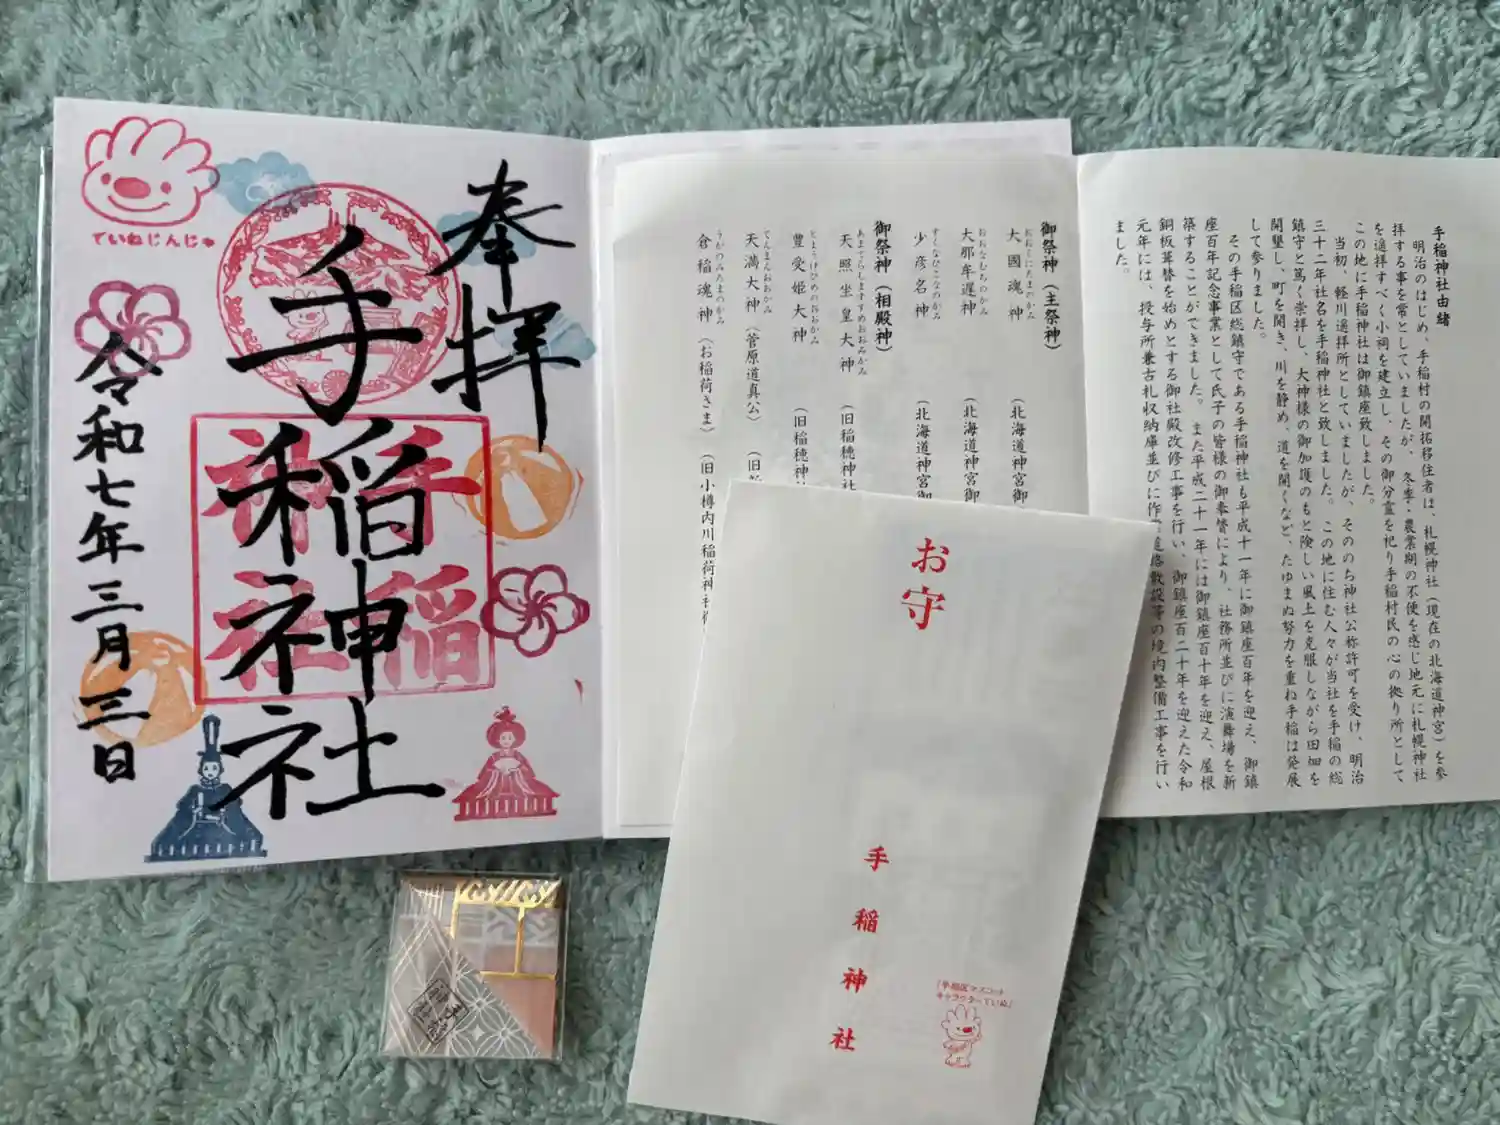 ていねじんじゃ
奉拝
手稲神社
手稲
神社
令和七年三月三日
御祭神(主祭神)
大國魂神 (北海道神宮御
おおくにたまのかみ
大那牟遅神 (北海道神宮御
おおなむちのかみ
少彦名神 (北海道神宮御
すくなひこなのかみ
御祭神(相殿神)
天照坐皇大神 (旧稲穂神社
あまてらしますすめおおみかみ
豊受姫大神 (旧稲穂神
とようけひめのおおかみ
天満大神(菅原道真公) (旧
てんまんおおかみ
倉稲魂神(お稲荷さま) (旧小樽内川稲荷神
うかのみたまのかみ
手稲神社由緒
明治のはじめ、手稲村の開拓移住者は、札幌神社(現在の北海道神宮)を参
拝する事を常としていましたが、冬季・農業期の不便を感じ地元に札幌神社
を遥拝すべく小祠を建立し、その御分霊を祀り手稲村民の心の拠り所として
この地に手稲神社は御鎮座致しました。
当初、軽川遥拝所としていましたが、そののち神社公称許可を受け、明治
三十二年社名を手稲神社と致しました。この地に住む人々が当社を手稲の総
鎮守と篤く崇拝し、大神様の御加護のもと険しい風土を克服しながら田畑を
開墾し、町を開き、川を静め、道を開くなど、たゆまぬ努力を重ね手稲は発展
して参りました。
その手稲区総鎮守である手稲神社も平成十一年に御鎮座百年を迎え、御鎮
座百年記念事業として氏子の皆様の御奉賛により、社務所並びに演舞場を新
築することができました。また平成二十一年には御鎮座百十年を迎え、屋根
銅板葺替を始めとする御社殿改修工事を行い、御鎮座百二十年を迎えた令和
元年には、授与所兼古札収納庫並びに作 道路敷設等の境内整備工事を行い
ました。
お守
手稲神社
「手稲区マスコット
キャラクターていぬ」
手稲
神社